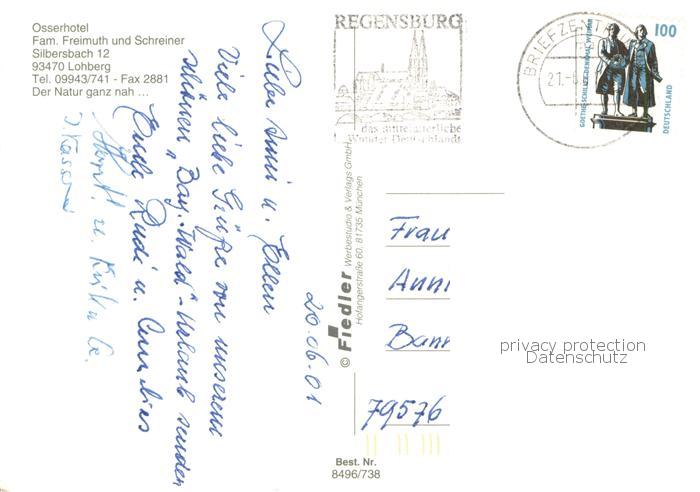 Osserhotel
Fam. Freimuth und Schreiner
Silbersbach 12
93470 Lohberg
Tel. 09943/741 - Fax 2881
Der Natur ganz nah ...
REGENSBURG
das mittelalterliche
Wunder Deutschlands
BRIEFZENTRUM
21.-6
GOETHE-SCHILLER-DENKMAL WEIMAR
100
DEUTSCHLAND
20.06.01
Liebe Anni u. Ellen
Viele liebe Grüße von unserem
schönen "Bay. Wald"-Urlaub senden
Euch Rudi u. Annelies
Horst u.
© Fiedler Werbestudio & Verlags GmbH
Hofangerstraße 60, 81735 München
Frau
Anni
Bann
79576
privacy protection
Datenschutz
Best. Nr.
8496/738